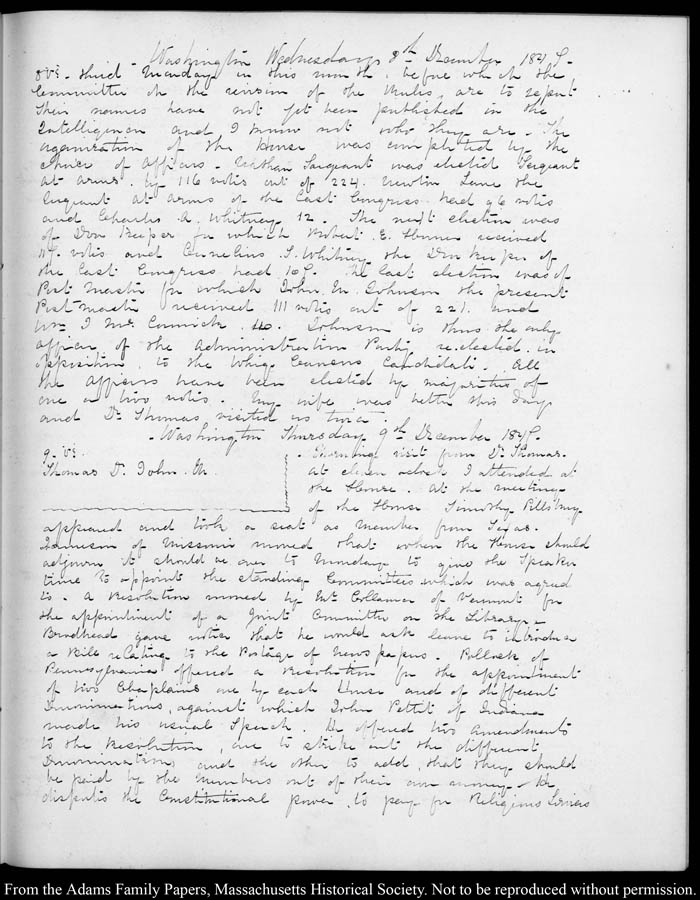 Washington Wednesday 8th December 1847.
8 V:3. third Monday in this month, before which the
Committee on the revision of the Rules, are to report
Their names have not yet been published in the
Intelligencer and I know not who they are. The
organization of the House was completed by the
choice of Officers. Nathan Sargeant was elected Sergeant
at arms. by 116 votes out of 224. Newton Lane the
Sergeant at arms of the last Congress had 96 votes
and Charles A. Whitney 12. The next election was
of Door Keeper for which Robert E. Horner received
votes and Cornelius S. Whitney the Door Keeper of
the last Congress had 107. The last election was of
Post Master for which John M. Johnson the present
Post Master received 111 votes out of 221 and
Wm J McCormick 110. Johnson is thus the only
officer of the Administration Party re.elected. in
opposition, to the Whig Caucus Candidate. All
the Officers have been elected by majorities of
one or two votes. My wife was better this day
and Dr Thomas visited us twice.
Washington Thursday 9th December 1847.
9. V:3.
Thomas Dr John M.
Morning visit from Dr Thomas.
at eleven oclock I attended at
the House. At the meeting
of the House Timothy Pillsbury
appeared and took a seat as member from Texas.
Jameson of Missouri moved that when the House should
adjourn it should be over to Monday to give the Speaker
time to appoint the standing Committees which was agreed
to. A Resolution moved by Mr Collamer of Vermont for
the appointment of a Joint Committee on the Library.
Brodhead gave notice that he would ask leave to introduce
a Bill relating to the Postage of Newspapers. Pollock of
Pennsylvania offered a Resolution for the appointment
of two Chaplains one by each House and of different
Denominations, against which John Pettit of Indiana
made his usual Speech. He offered two amendments
to the Resolution, one to strike out the different
Denominations and the other to add, that they should
be paid by the members out of their own money. He
disputes the Constitutional power, to pay for Religious Services
From the Adams Family Papers, Massachusetts Historical Society. Not to be reproduced without permission.